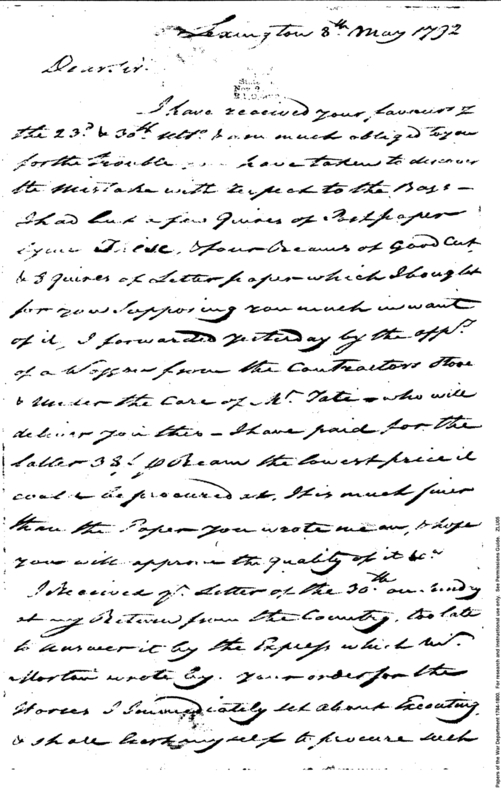 Lexington 8th May 1792
Dear Sir.
I have received your favours of
the 23d. & 30th Ulto. & am much obliged to you
for the trouble have taken to discover
the mistake with Respect to the Bags -
I had but a few Quires of Post paper
& four Reams of Good Cut
& 3 quires of Letter paper which I bought
for you Supposing you much in want
of it, I forwarded yesterday by the oppy.
of a Waggon from the Contractors Store
& under the Care of Mr. Tate - who will
deliver you this - I have paid for the
latter 33/ p Ream the lowest price it
could be procured at. It is much finer
than the Paper you wrote me on, & hope
you will approve the quality of it &c
I Received yr. Letter of the 30th on
at my Return from the Country, too late
to answer it by the Express which Mr.
Morton wrote by. Your order for the
Horses I Immediately set about Executing
& share myself to procure such
Papers of the War Department 1784-1800. For research and instructional use only. See Permissions Guide. ZLU05